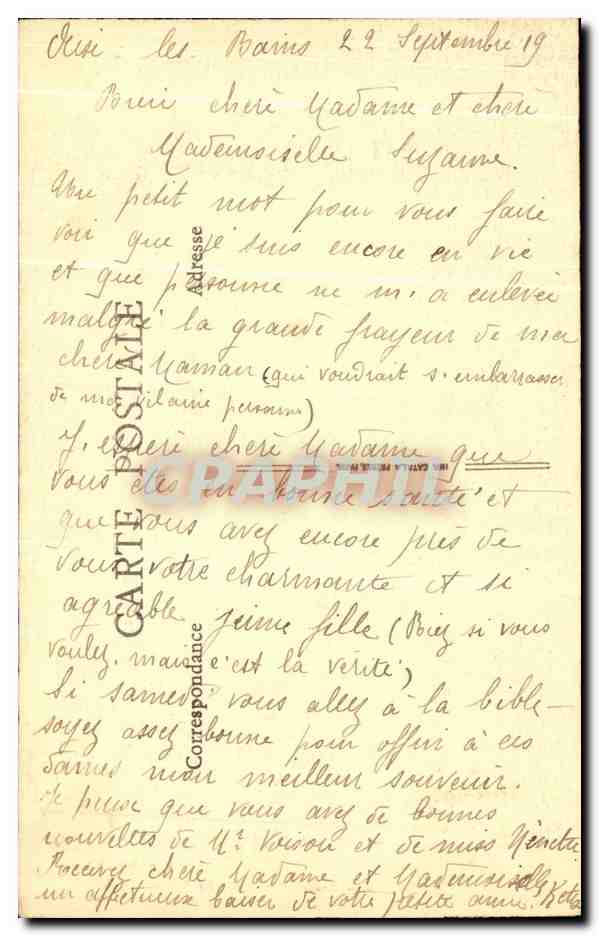 les Bains 22 Septembre 19
Bien chère Madame et chère
Mademoiselle Suzanne.
Un petit mot pour vous faire
voir que je suis encore en vie
et que personne ne m'a enlevée
malgré la grande frayeur de ma
chère Maman (qui voudrait s'embarrasser
de ma vilaine personne)
J'espère chère Madame que
vous êtes en bonne santé et
que vous avez encore près de
vous votre charmante et si
agréable jeune fille (Riez si vous
voulez, mais c'est la vérité)
Si samedi vous allez à la bible
soyez assez bonne pour offrir à ces
dames mon meilleur souvenir.
Je pense que vous avez de bonnes
nouvelles de Mr Voison et de miss
Recevez chère Madame et Mademoiselle
un affectueux baiser de votre petite amie.
CARTE POSTALE
Correspondance
Adresse
IMP. CATALA FRERES, PARIS
CPAPHIL